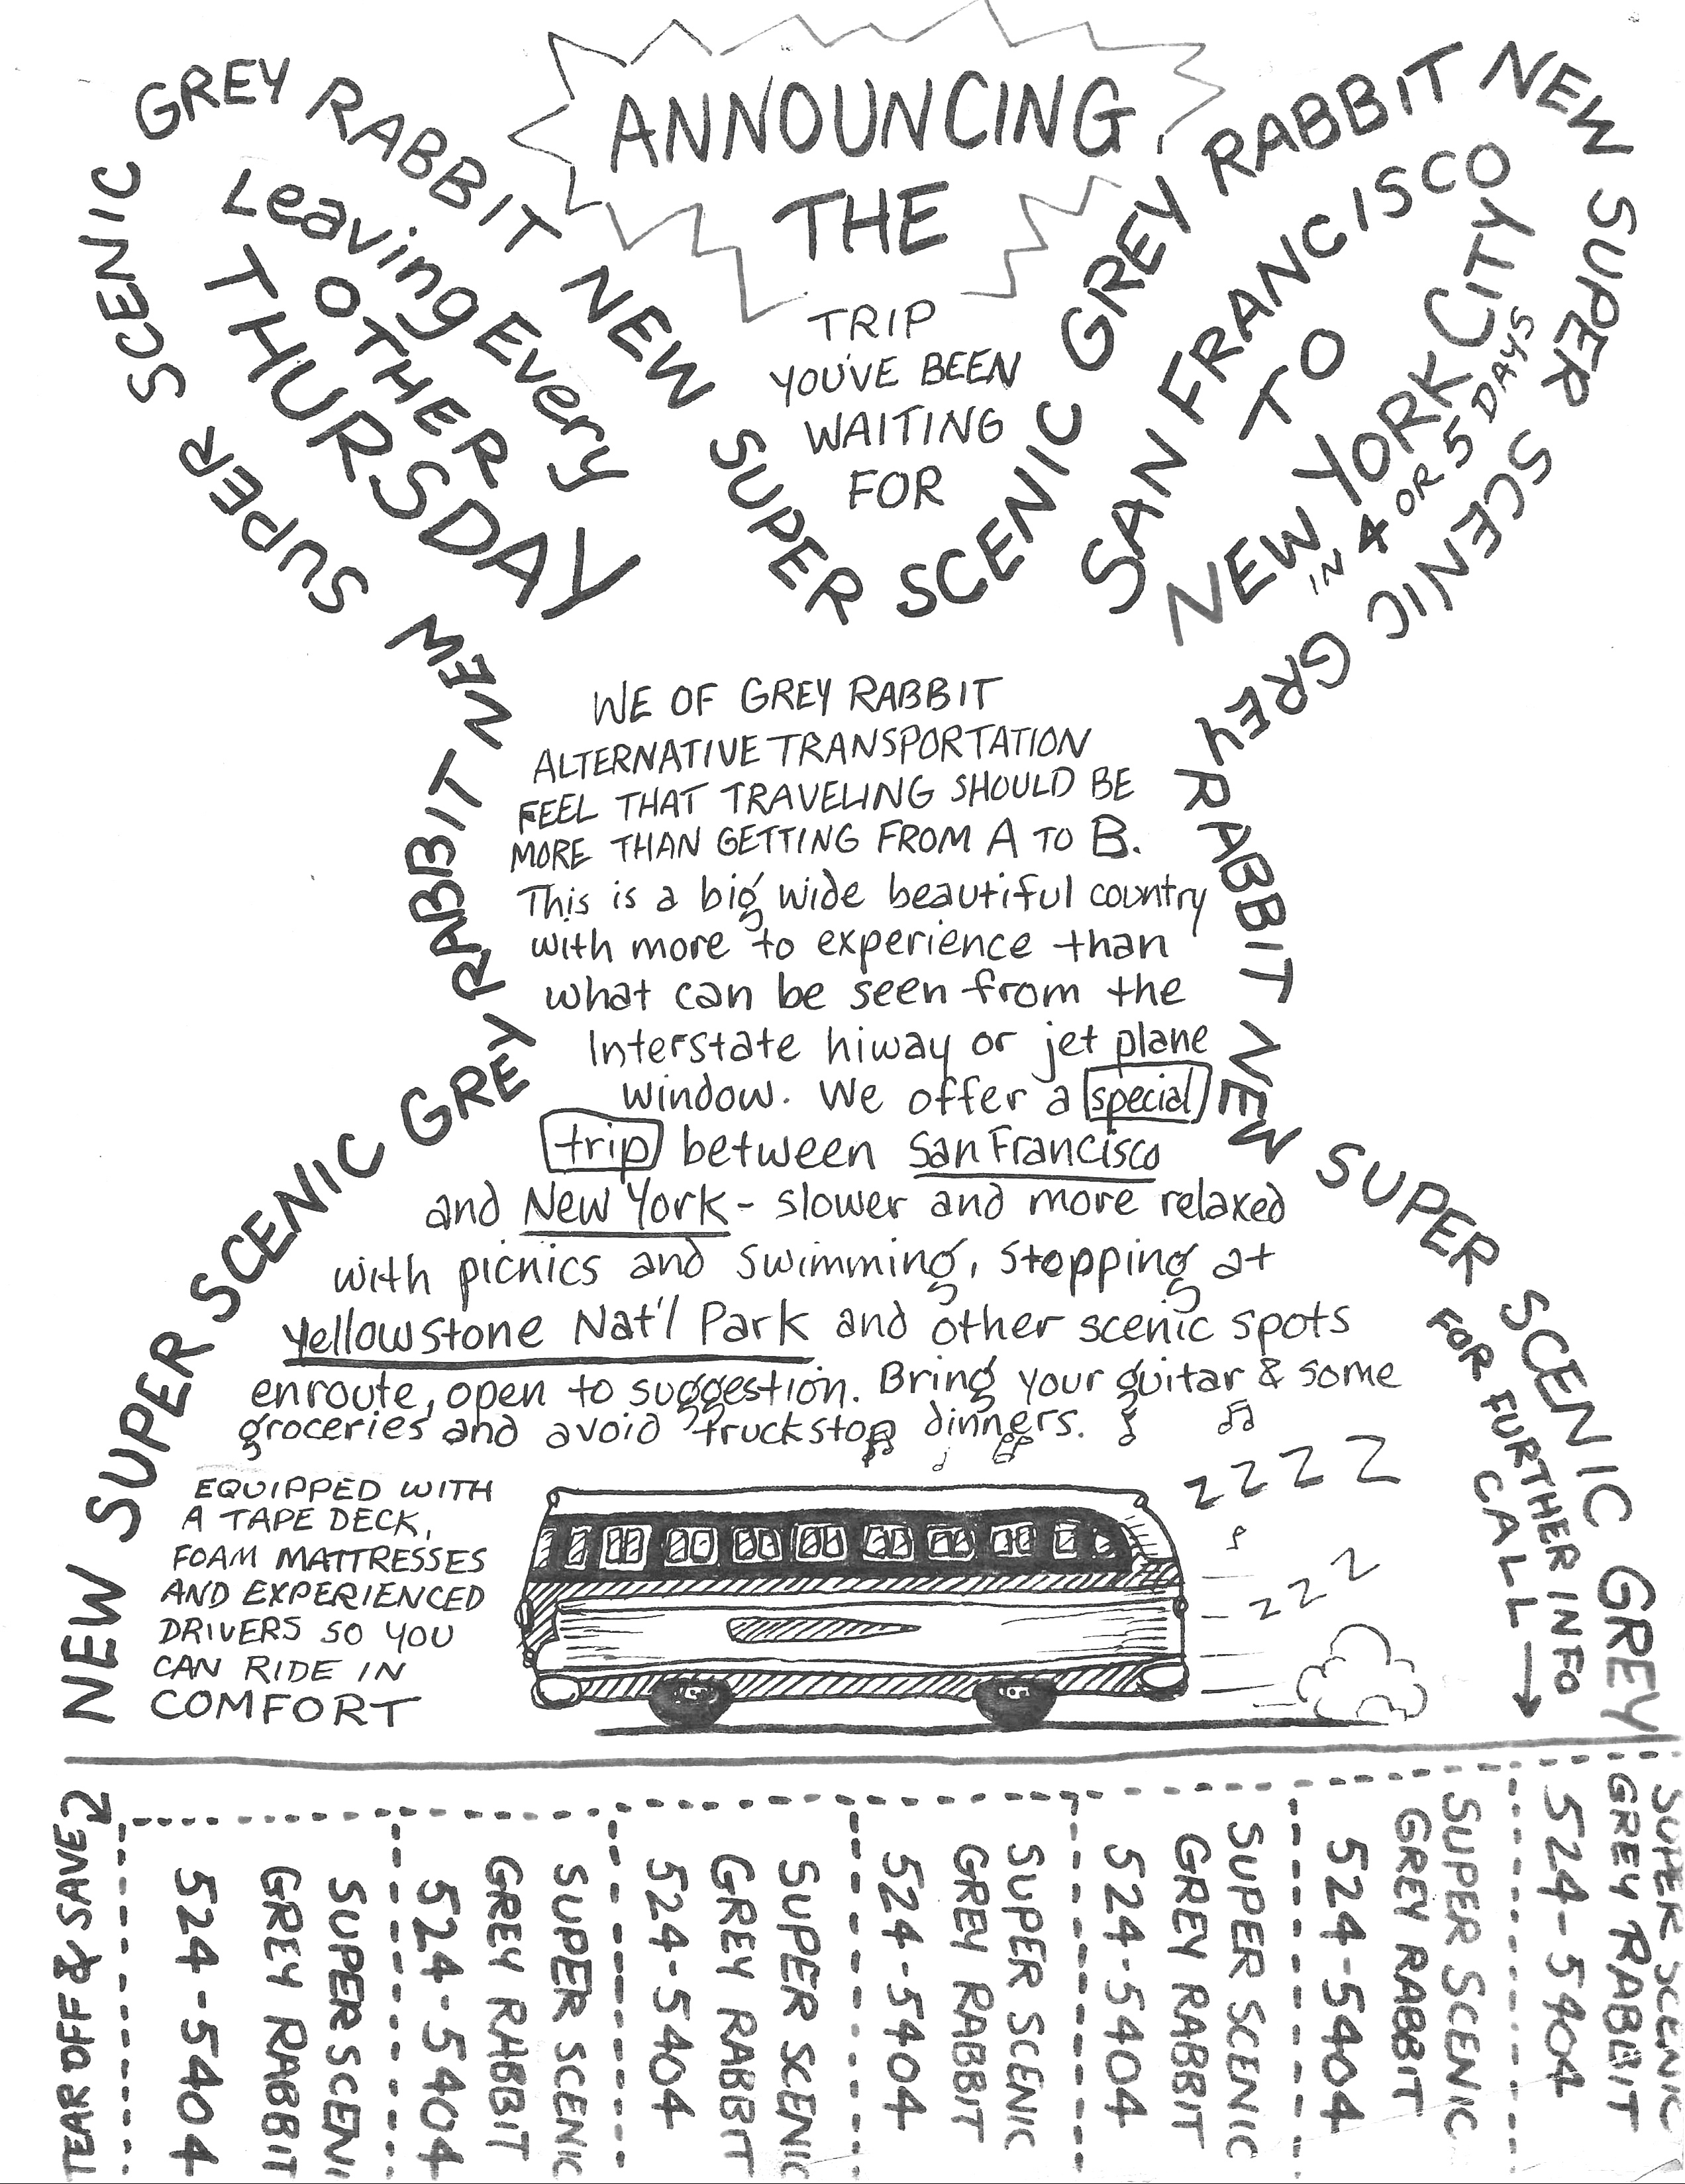 ANNOUNCING
THE
TRIP
YOU'VE BEEN
WAITING
FOR
NEW SUPER SCENIC GREY RABBIT NEW SUPER SCENIC GREY RABBIT NEW SUPER SCENIC GREY RABBIT NEW SUPER SCENIC GREY RABBIT NEW SUPER SCENIC GREY RABBIT NEW SUPER SCENIC GREY
Leaving Every
OTHER
THURSDAY
SAN FRANCISCO
TO
NEW YORK CITY
IN 4 OR 5 DAYS
WE OF GREY RABBIT
ALTERNATIVE TRANSPORTATION
FEEL THAT TRAVELING SHOULD BE
MORE THAN GETTING FROM A TO B.
This is a big wide beautiful country
with more to experience than
what can be seen from the
Interstate hiway or jet plane
window. We offer a special
trip between San Francisco
and New York - slower and more relaxed
with picnics and swimming, stopping at
Yellowstone Nat'l Park and other scenic spots
enroute, open to suggestion. Bring your guitar & some
groceries and avoid truckstop dinners.
EQUIPPED WITH
A TAPE DECK,
FOAM MATTRESSES
AND EXPERIENCED
DRIVERS SO YOU
CAN RIDE IN
COMFORT
Z Z Z Z
Z Z Z
FOR FURTHER INFO
CALL
TEAR OFF & SAVE
SUPER SCENIC
GREY RABBIT
524-5404
SUPER SCENIC
GREY RABBIT
524-5404
SUPER SCENIC
GREY RABBIT
524-5404
SUPER SCENIC
GREY RABBIT
524-5404
SUPER SCENIC
GREY RABBIT
524-5404
SUPER SCENIC
GREY RABBIT
524-5404
SUPER SCENIC
GREY RABBIT
524-5404